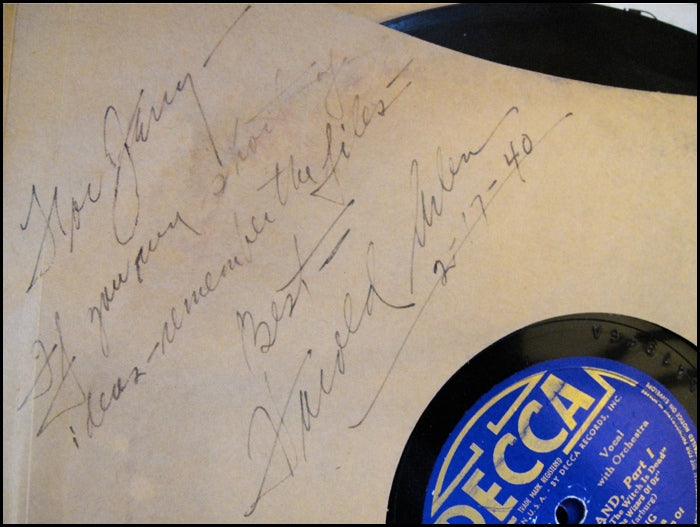 For Jerry –
If you run short of
ideas – remember the files –
Best –
Harold Arlen
2-17-40
DECCA
TRADE MARK REGISTERED
U.S.A. · BY DECCA RECORDS, INC.
Vocal
with Orchestra
AND, Part 1
The Witch is Dead"
Wizard of Oz"
Harburg)
G